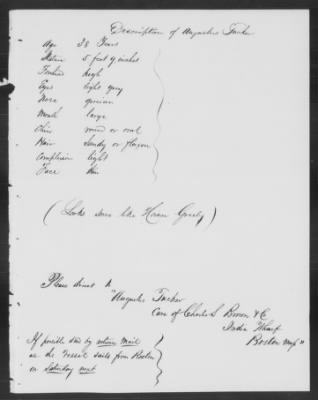 Description of Augustus Tucker
Age 38 Years
Stature 5 feet 9 inches
Forehead high
Eyes light grey
Nose grecian
Mouth large
Chin round or oval
Hair Sandy or flaxen
Complexion light
Face thin
(Looks some like Horace Greely)
Please direct to
"Augustus Tucker
Care of Charles L Brown & Co
India Wharf
Boston Mass"
If possible send by return Mail
as the vessel sails from Boston
on Saturday next